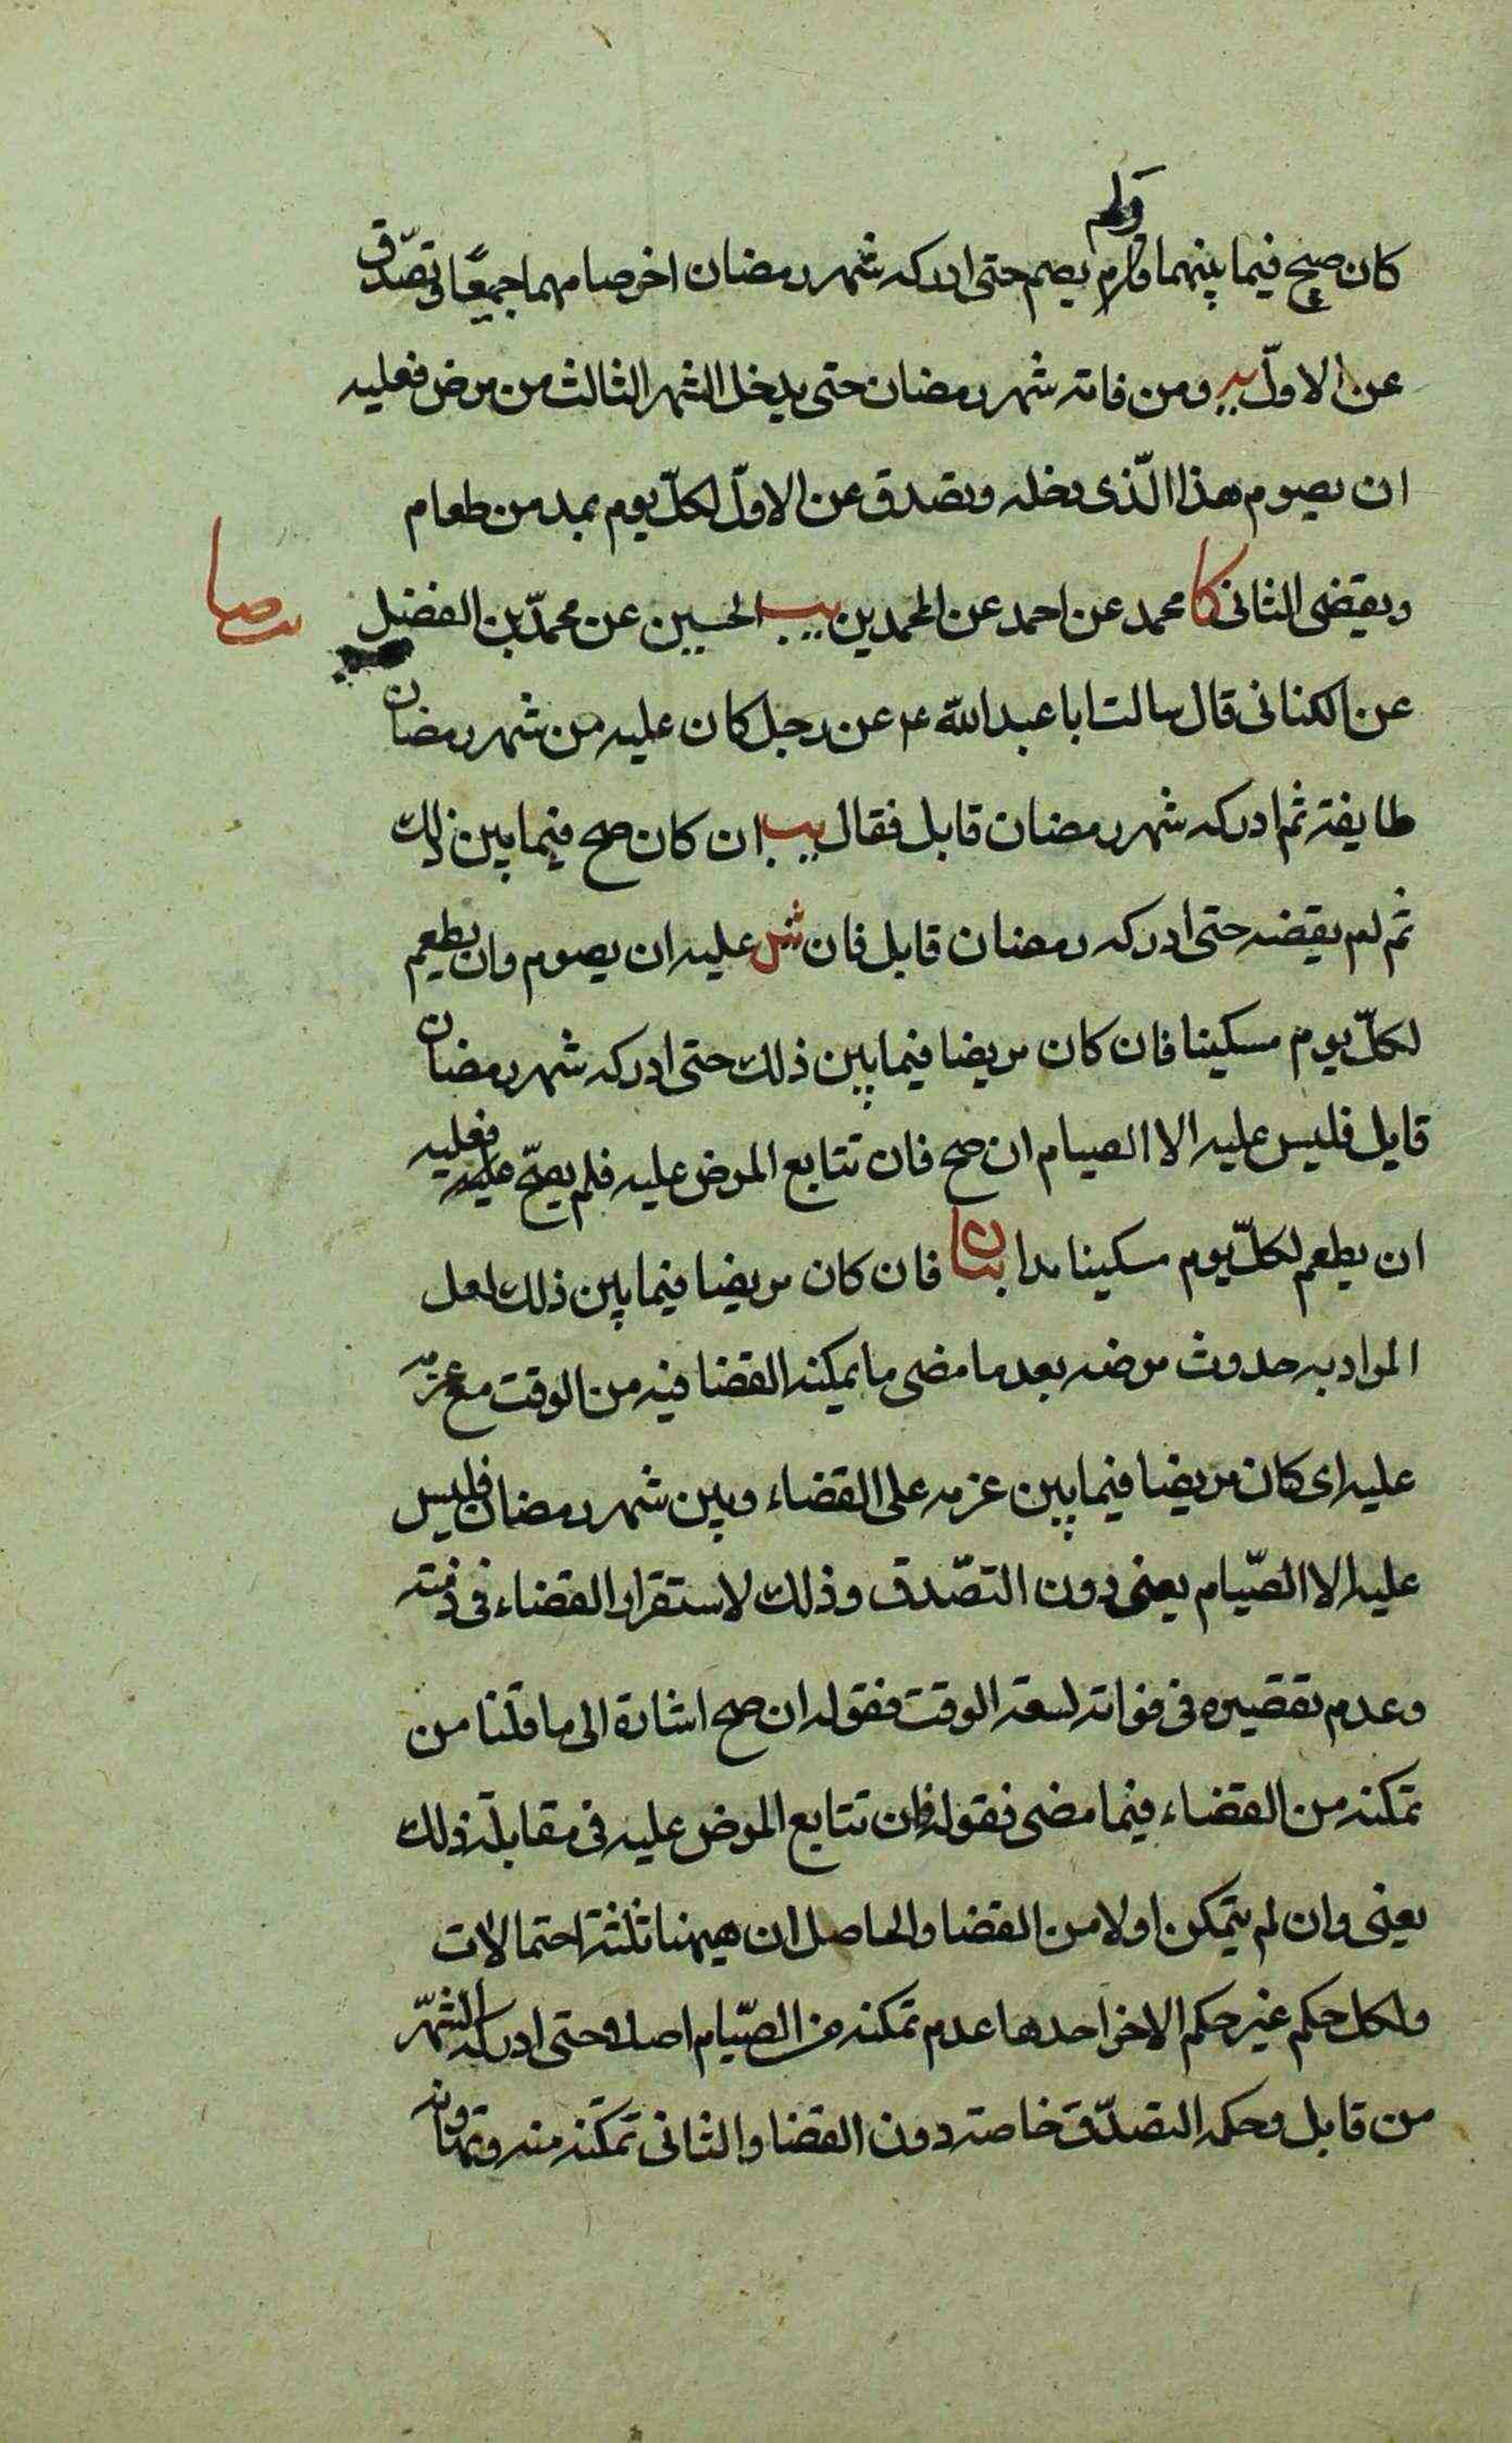 ولم
كان صح فيما بينهما ولم يصم حتى ادركه شهر رمضان اخر صامهما جميعًا وتصدّق
عن الاوّل يه ومن فاته شهر رمضان حتى يدخل الشهر الثالث من مرض فعليه
ان يصوم هذا الّذى دخله وتصدق عن الاوّل لكلّ يوم بمد من طعام
ويقضى الثانى كا محمد عن احمد عن المحمدين يب الحسين عن محمّد بن الفضيل
عن الكنانى قال سالت ابا عبد الله ع عن رجل كان عليه من شهر رمضان
طايفة ثم ادركه شهر رمضان قابل فقال يب ان كان صح فيما بين ذلك
ثم لم يقضه حتى ادركه رمضان قابل فان ش عليه ان يصوم وان يطعم
لكلّ يوم مسكينا فان كان مريضا فيما بين ذلك حتى ادركه شهر رمضان
قابل فليس عليه الا الصيام ان صح فان تتابع المرض عليه فلم يصحّ فعليه
ان يطعم لكلّ يوم مسكينا مدا بيان فان كان مريضا فيما بين ذلك لعل
المراد به حدوث مرضه بعد ما مضى ما يمكنه القضا فيه من الوقت مع عزمه
عليه اى كان مريضا فيما بين عزمه على القضاء وبين شهر رمضان فليس
عليه الا الصّيام يعنى دون التصّدق وذلك لاستقرار القضاء فى ذمته
وعدم تقصيره فى فواته لسعة الوقت فقوله ان صح اشارة الى ما قلنا من
تمكنه من القضاء فيما مضى فقوله فان تتابع المرض عليه فى مقابلة ذلك
يعنى وان لم يتمكن اولا من القضا والحاصل ان هيهنا ثلثة احتمالات
ولكل حكم غير حكم الاخر احدها عدم تمكنه من الصّيام اصلا حتى ادركه الشهر
من قابل وحكمه التصدّق خاصة دون القضا والثانى تمكّنه منه وتهاونه